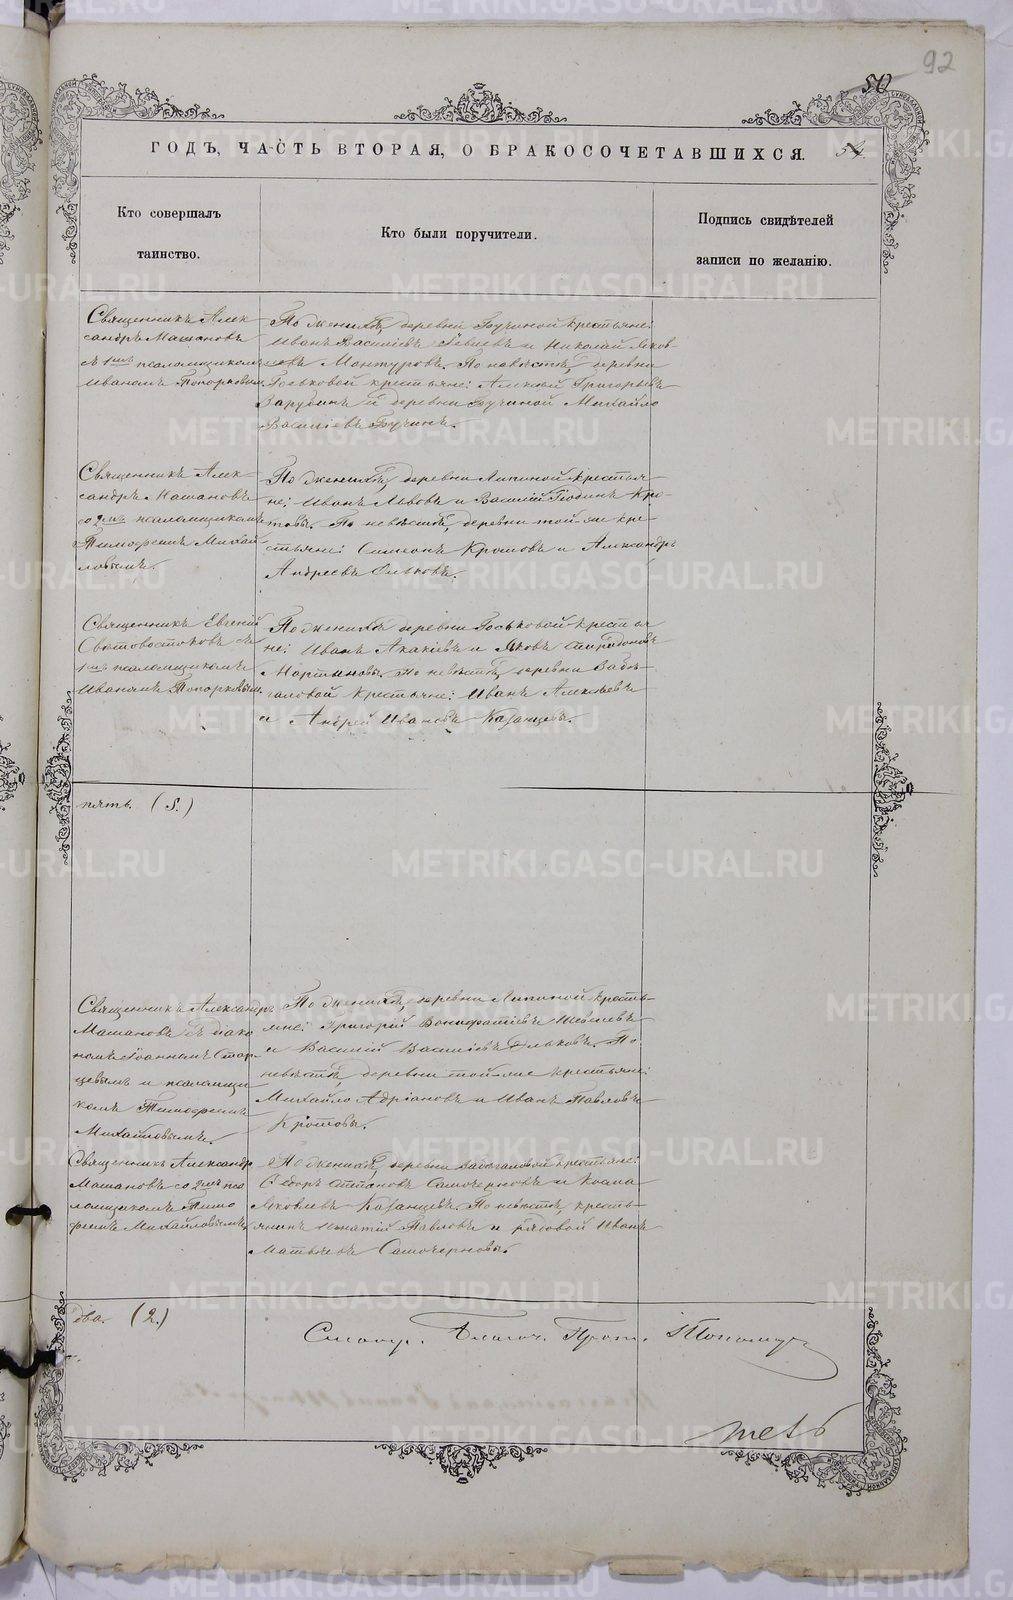 92
50
ГОДЪ, ЧАСТЬ ВТОРАЯ, О БРАКОСОЧЕТАВШИХСЯ.
54
Кто совершалъ
таинство.
Кто были поручители.
Подпись свидѣтелей
записи по желанію.
Священникъ Алек
сандръ Машановъ
съ 1мъ псаломщикомъ
Иваномъ Топорковымъ.
По женихѣ, деревни Бучиной крестьяне:
Иванъ Василіевъ и Николай Яков
левъ Мантуровъ. По невѣстѣ, деревни
Госьковой крестьяне: Алексѣй Григорьевъ
Зарубинъ и деревни Бучиной Михайло
Василіевъ Бучинъ.
Священникъ Алек
сандръ Машановъ
со 2мъ псаломщикомъ
Тимофеемъ Михай
ловымъ.
По женихѣ, деревни Липиной крестья
не: Иванъ Львовъ и Василій Кро
товы. По невѣстѣ, деревни той-же кре
стьяне: Симеонъ Кротовъ и Александръ
Андреевъ Ольковъ.
Священникъ Евгеній
Святовостоковъ съ
1мъ псаломщикомъ
Иваномъ Топорковымъ.
По женихѣ деревни Госьковой крестья
не: Иванъ Акакіевъ и Яковъ Спиридоновъ
Мартыновы. По невѣстѣ, деревни Вави
галовой крестьяне: Иванъ Алексѣевъ
и Андрей Ивановъ Казанцевы.
пять. (5.)
Священникъ Александръ
Машановъ съ діако
номъ Іоанномъ Стар
цевымъ и псаломщи
комъ Тимофеемъ
Михайловымъ.
По женихѣ, деревни Липиной кресть
яне: Григорій Вонифатіевъ Шевелевъ
и Василій Василіевъ Ольковъ. По
невѣстѣ, деревни той-же крестьяне:
Михайло Адріановъ и Иванъ Павловъ
Кротовы.
Священникъ Александр
Машановъ со 2мъ пса
ломщикомъ Тимо
феемъ Михайловымъ.
По женихѣ, деревни крестьяне:
Ѳедоръ Степановъ Самочерновъ и
Яковлевъ Казанцевъ. По невѣстѣ, кресть
янинъ Игнатій Павловъ и рядовой Иванъ
Матвѣевъ Самочерновы.
два. (2.)
Смотр. Благоч. Прот.